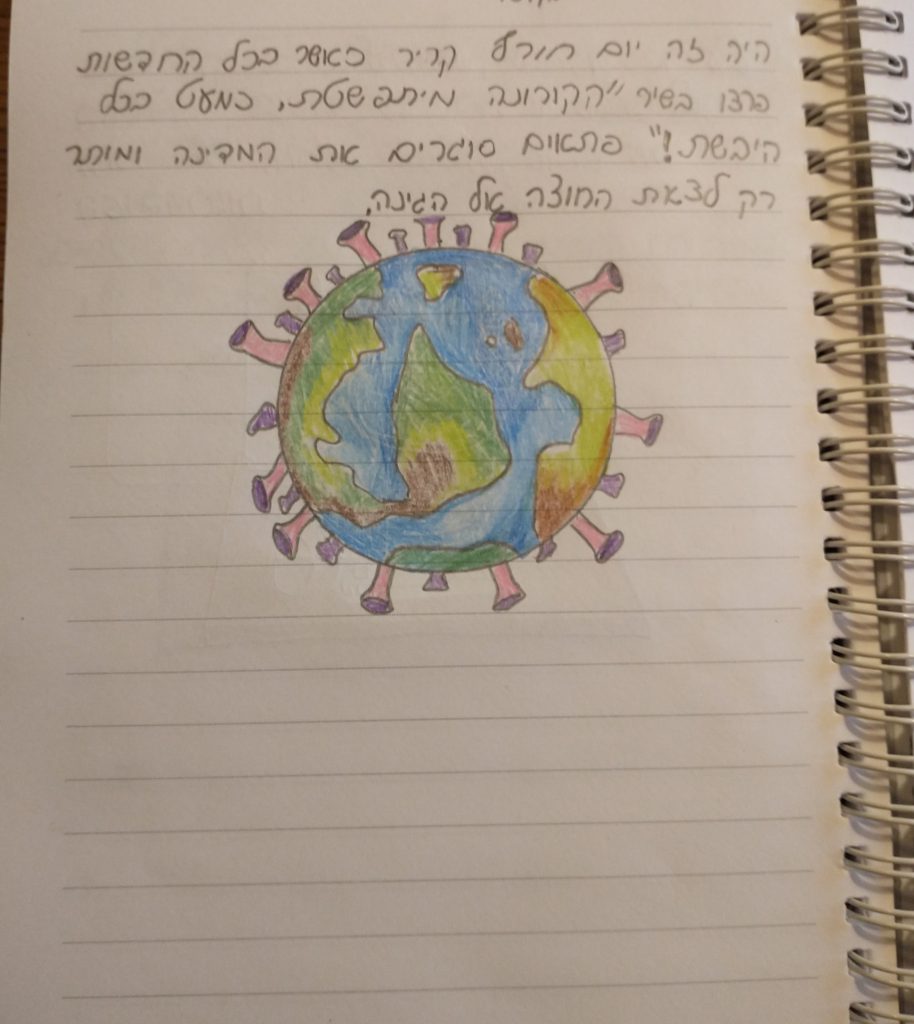 היה זה יום חורף קריר כאשר בכל החדשות
פרצו בשיר "הקורונה מיתפשטת, כמעט בכל
היבשת!" פתאום סוגרים את המדינה ומותר
רק לצאת החוצה אל הגינה.